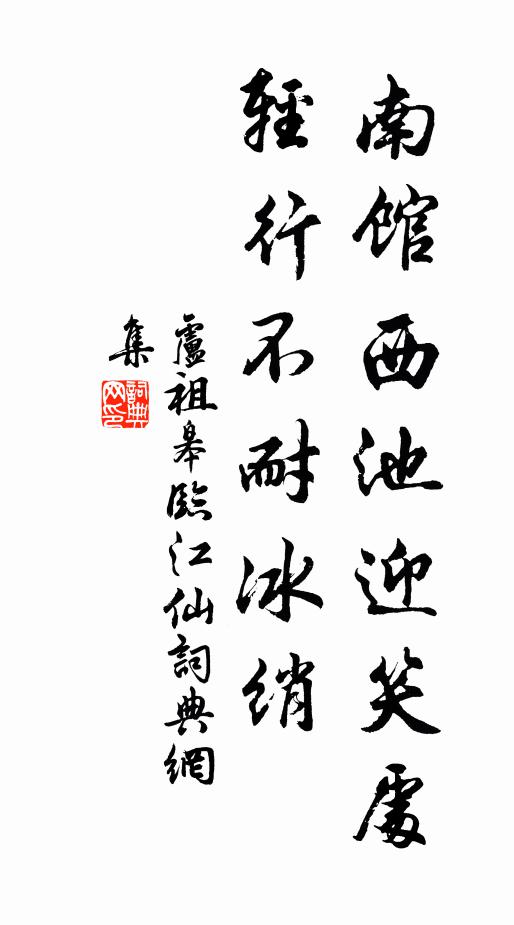 南馆西池迎笑處
輕行不耐冰绡
盧祖皋臨江仙詞典網
集
詞典
网印